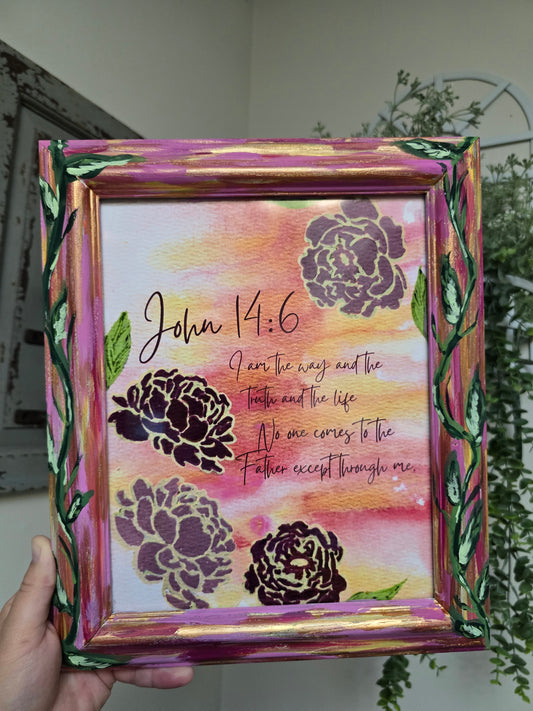 John 14:6
I am the way and the
truth and the life
No one comes to the
Father except through me.